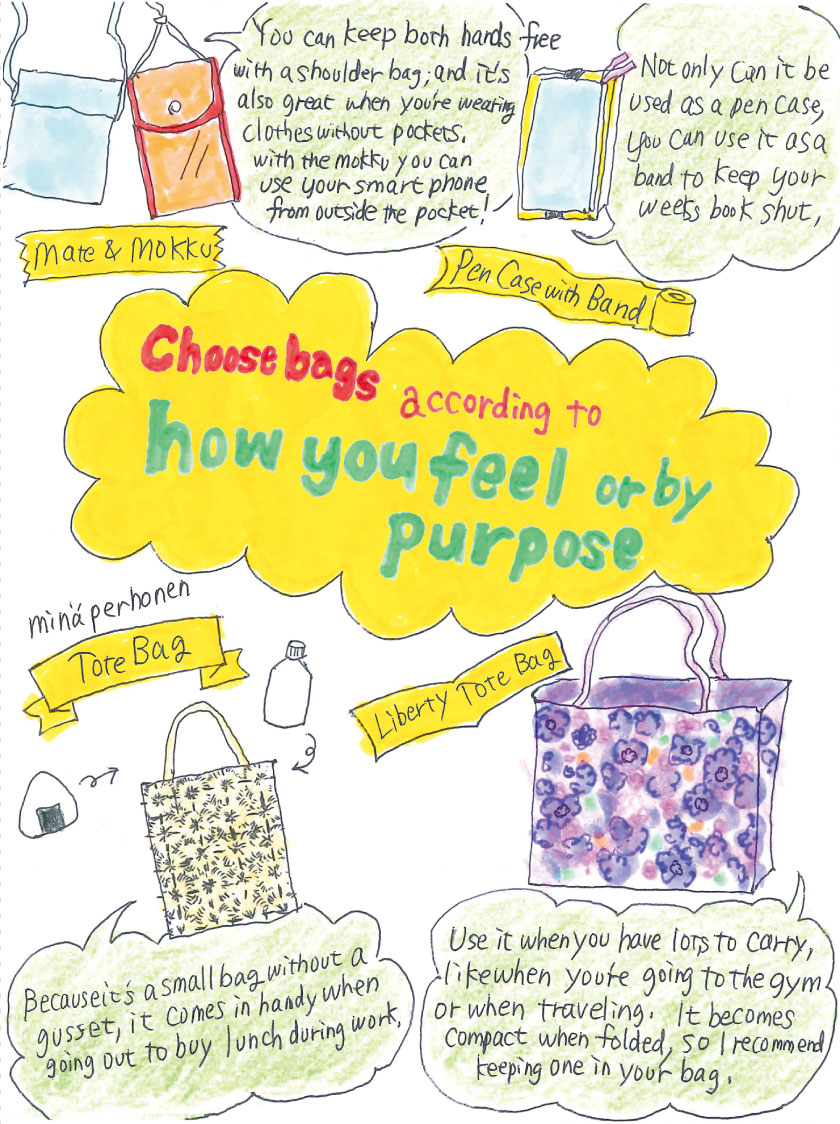 You can keep both hands free
with a shoulder bag, and it's
also great when you're wearing
clothes without pockets.
with the mokku you can
use your smart phone
from outside the pocket!
Not only can it be
used as a pen case,
you can use it as a
band to keep your
weeks book shut,
Mate & Mokku
Pen Case with Band
Choose bags
according to
how you feel or by
purpose
minä perhonen
Tote Bag
Liberty Tote Bag
Because it's a small bag without a
gusset, it comes in handy when
going out to buy lunch during work.
Use it when you have lots to carry,
like when you're going to the gym
or when traveling. It becomes
compact when folded, so I recommend
keeping one in your bag.